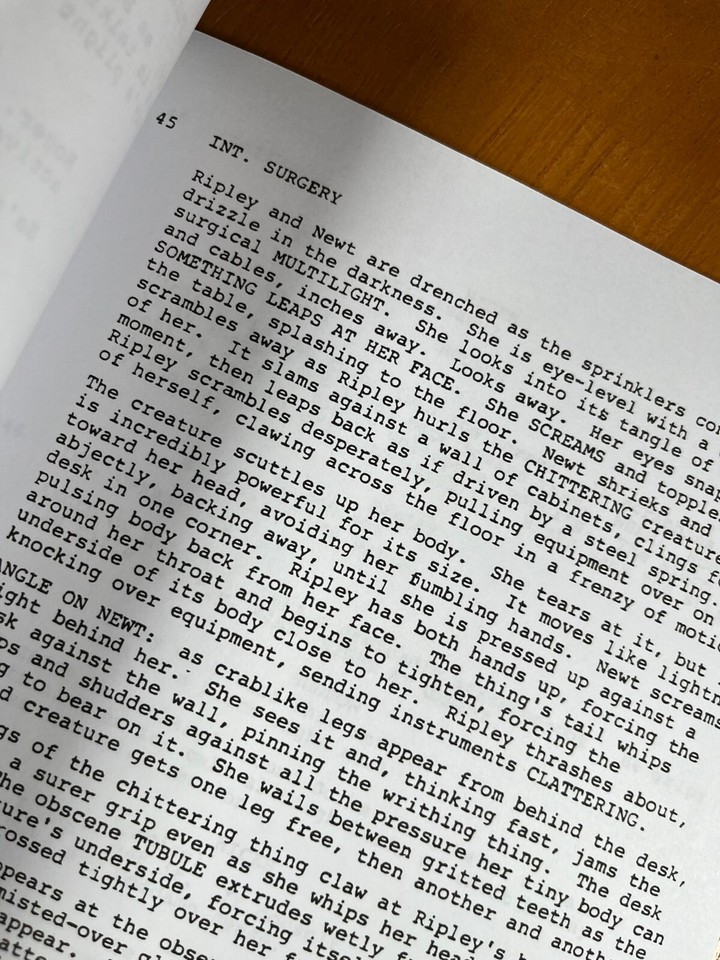 45
INT. SURGERY
Ripley and Newt are drenched as the sprinklers
drizzle in the darkness. She is eye-level with a
surgical MULTILIGHT. She looks into its tangle of
and cables, inches away. Looks away. Her eyes
SOMETHING LEAPS AT HER FACE. She SCREAMS and
the table, splashing to the floor. Newt shrieks and
scrambles away as Ripley hurls the CHITTERING
of her. It slams against a wall of cabinets, clings
moment, then leaps back as if driven by a steel spring.
Ripley scrambles desperately, pulling equipment over on
of herself, clawing across the floor in a frenzy of
The creature scuttles up her body. She tears at it, but
is incredibly powerful for its size. It moves like
toward her head, avoiding her fumbling hands. Newt screams
abjectly, backing away, until she is pressed up against a
desk in one corner. Ripley has both hands up, forcing the
pulsing body back from her face. The thing's tail whips
around her throat and begins to tighten, forcing the
underside of its body close to her. Ripley thrashes about,
knocking over equipment, sending instruments CLATTERING.
ANGLE ON NEWT: as crablike legs appear from behind the desk,
behind her. She sees it and, thinking fast, jams the
against the wall, pinning the writhing thing. The desk
and shudders against all the pressure her tiny body can
to bear on it. She wails between gritted teeth as the
creature gets one leg free, then another and
of the chittering thing claw at Ripley's
a surer grip even as she whips her
obscene TUBULE extrudes wetly
underside, forcing
tightly over her
at the
misted-over